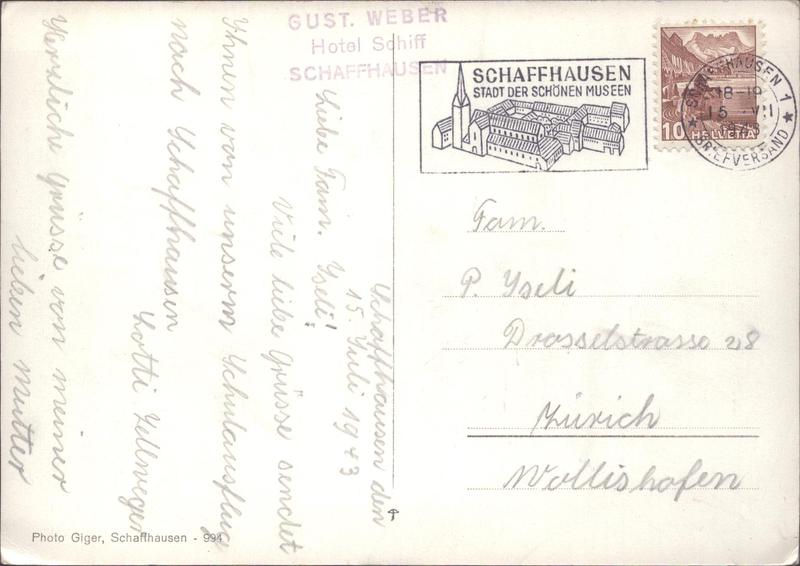 GUST. WEBER
Hotel Schiff
SCHAFFHAUSEN
SCHAFFHAUSEN
STADT DER SCHÖNEN MUSEEN
SCHAFFHAUSEN 1
18-19
15. VII
BRIEFVERSAND
10 HELVETIA
Schaffhausen den
15. Juli 1943
Liebe Fam. Yseli!
Viele liebe Grüsse sendet
Ihnen von unserm Schulausflug
nach Schaffhausen
Lotti Zellweger
Herzliche Grüsse von meiner
lieben Mutter
Fam.
P. Yseli
Drosselstrasse 28
Zürich
Wollishofen
Photo Giger, Schaffhausen - 994